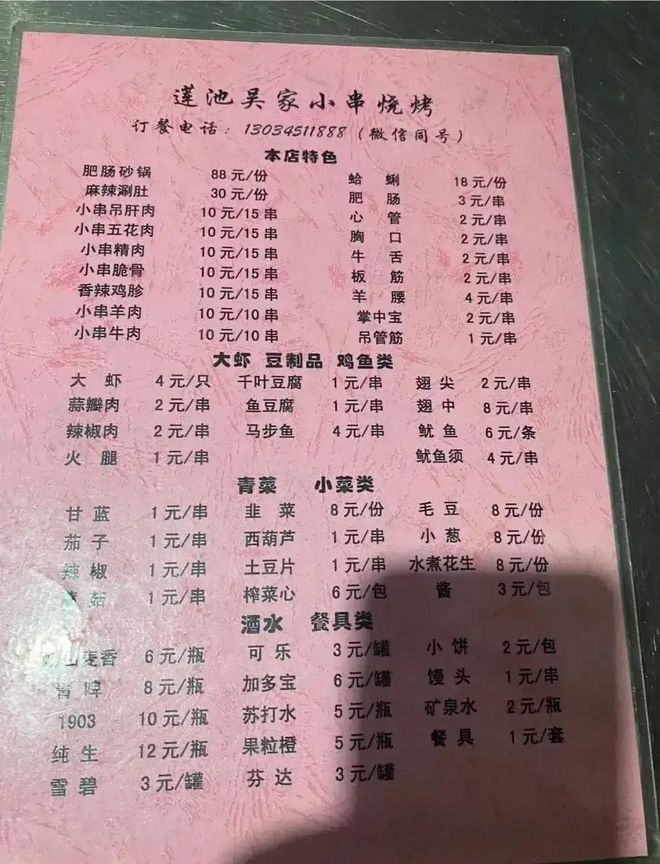 莲池吴家小串烧烤
订餐电话：13034511888（微信同号）
本店特色
肥肠砂锅 88元/份 蛤蜊 18元/份
麻辣涮肚 30元/份 肥肠 3元/串
小串吊肝肉 10元/15串 心管 2元/串
小串五花肉 10元/15串 胸口 2元/串
小串精肉 10元/15串 牛舌 2元/串
小串脆骨 10元/15串 板筋 2元/串
香辣鸡胗 10元/15串 羊腰 4元/串
小串羊肉 10元/10串 掌中宝 2元/串
小串牛肉 10元/10串 吊管筋 1元/串
大虾 豆制品 鸡鱼类
大虾 4元/只 千叶豆腐 1元/串 翅尖 2元/串
蒜瓣肉 2元/串 鱼豆腐 1元/串 翅中 8元/串
辣椒肉 2元/串 马步鱼 4元/串 鱿鱼 6元/条
火腿 1元/串 鱿鱼须 4元/串
青菜 小菜类
甘蓝 1元/串 韭菜 8元/份 毛豆 8元/份
茄子 1元/串 西葫芦 1元/串 小葱 8元/份
辣椒 1元/串 土豆片 1元/串 水煮花生 8元/份
菇 1元/串 榨菜心 6元/包 酱 3元/包
酒水 餐具类
山麦香 6元/瓶 可乐 3元/罐 小饼 2元/包
青啤 8元/瓶 加多宝 6元/罐 馒头 1元/串
1903 10元/瓶 苏打水 5元/瓶 矿泉水 2元/瓶
纯生 12元/瓶 果粒橙 5元/瓶 餐具 1元/套
雪碧 3元/罐 芬达 3元/罐